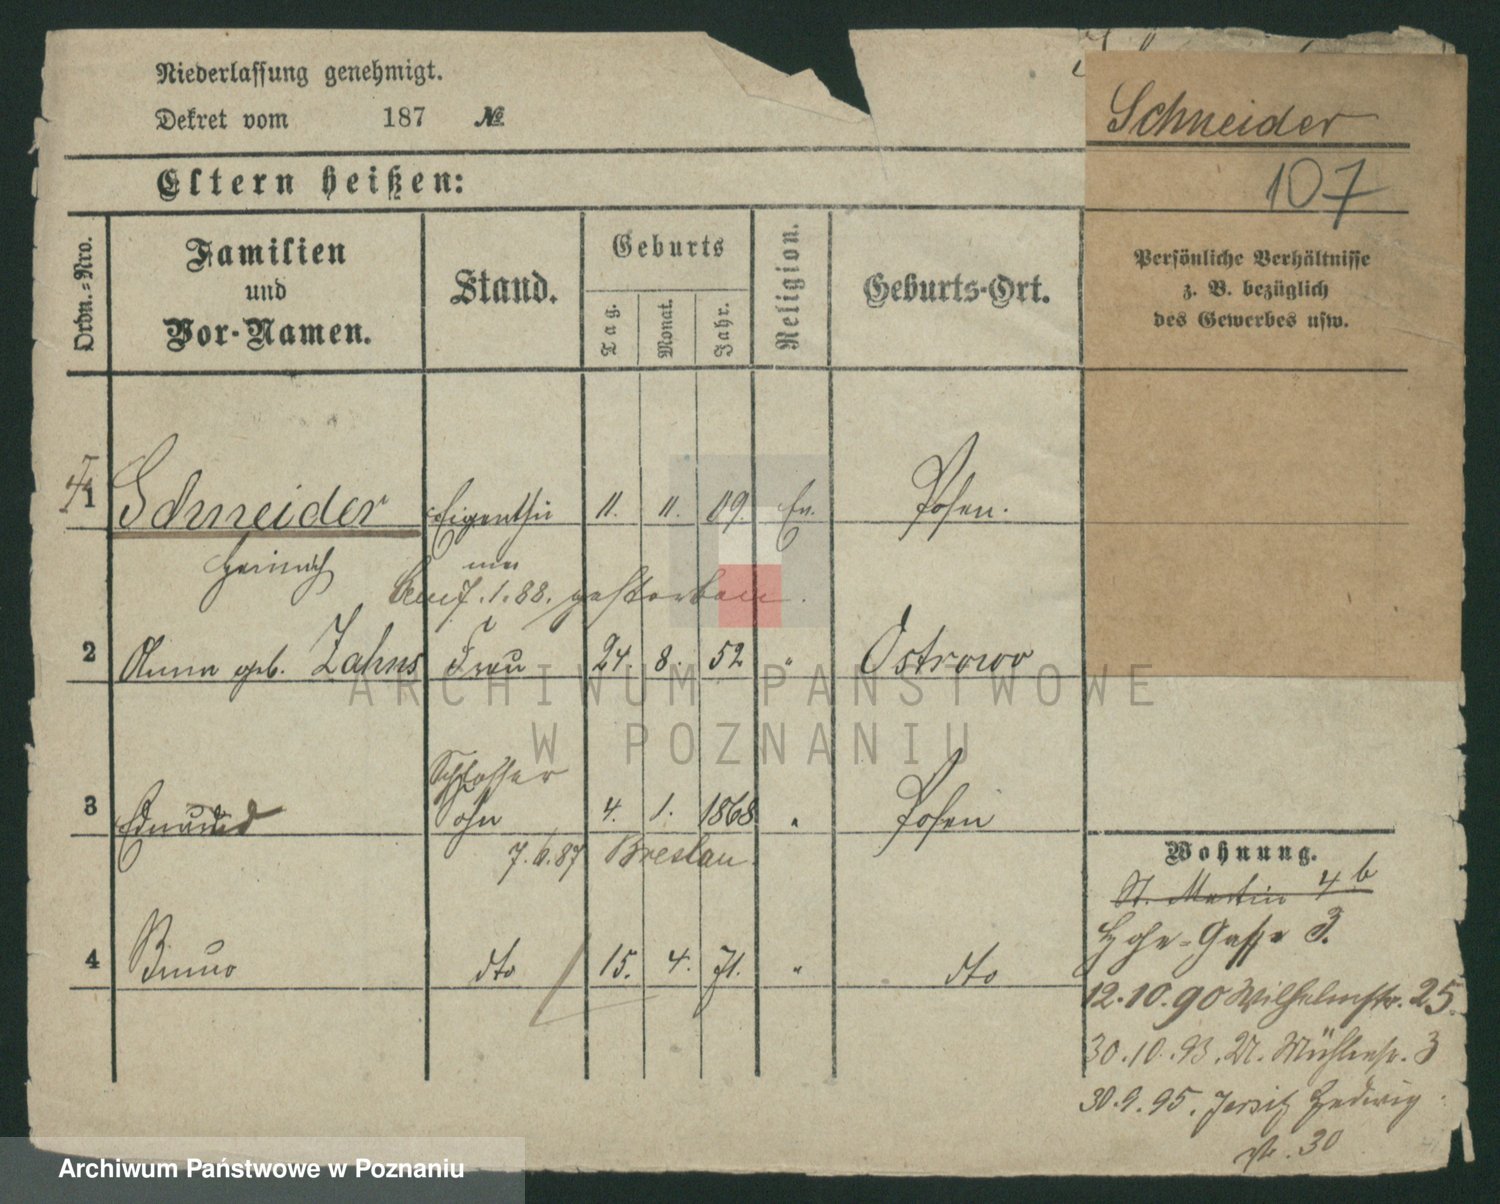 Niederlassung genehmigt.
Dekret vom 187 №
Schneider
107
Eltern heißen:
Ordn.-Nro.
Familien
und
Vor-Namen.
Stand.
Geburts
Tag.
Monat.
Jahr.
Religion.
Geburts-Ort.
Persönliche Verhältnisse
z. B. bezüglich
des Gewerbes usw.
1 Schneider Eigenthü 11. 11. 19. Ev. Posen.
Heinrich mer
7.1.88. gestorben.
2 Anna geb. Zahns Frau 24. 8. 52 " Ostrowo
Schlosser
3 Edmund Sohn 4. 1. 1868 " Posen
7.6.87 Breslau.
4 Bruno dto 15. 4. 71. " dto
Wohnung.
St. Martin 4 b
Hohe-Gasse 3.
12.10.90 Wilhelmstr. 25.
30.10.93. Mühlenstr. 3
30.9.95. Jersitz Hedwig
str. 30
ARCHIWUM PAŃSTWOWE
W POZNANIU
Archiwum Państwowe w Poznaniu